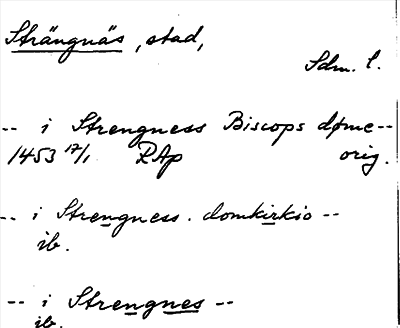 Strängnäs, stad,
Sdm. l.
-- i Strengness Biscops døme--
1453 17/1 RAp orig.
-- i Strengness. domkirkio --
ib.
-- i Strengnes --
ib.